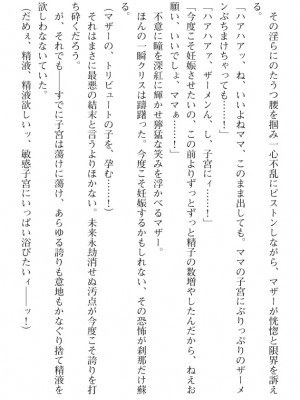 その淫らにのたうつ腰を掴み一心不乱にピストンしながら、マザーが恍惚と限界を訴え
る。
「ハアハアッ、ね、いいよねママ、このまま出しても。ママの子宮にぷりっぷりのザーメ
ンぶちまけちゃっても……！」
「ハアハアァッ、ザーメンん、し、子宮にィ……！」
「今度こそ妊娠させたいの、この前よりずっとずっと精子の数増やしたんだから、ねえお
願い、いいでしょ、ママぁ……！」
不意に瞳を深紅に輝かせ獰猛な笑みを浮かべるマザー。
ほんの一瞬クリスは躊躇った。今度こそ妊娠するかもしれない、その恐怖が刹那だけ蘇
る。
（マザーの、トリビュートの子を、孕む……！）
それはまさに最悪の結末と言うよりほかない。未来永劫消せぬ汚点が今度こそ誇りを打
ち砕くだろう。
が、それでも――すでに子宮は蕩けに蕩け、あらゆる誇りも意地もかなぐり捨て精液を
欲しないわなないていた。
（だめぇ、精液、精液欲しいィッ、敏感子宮にいっぱい浴びたいィ――ッ！）